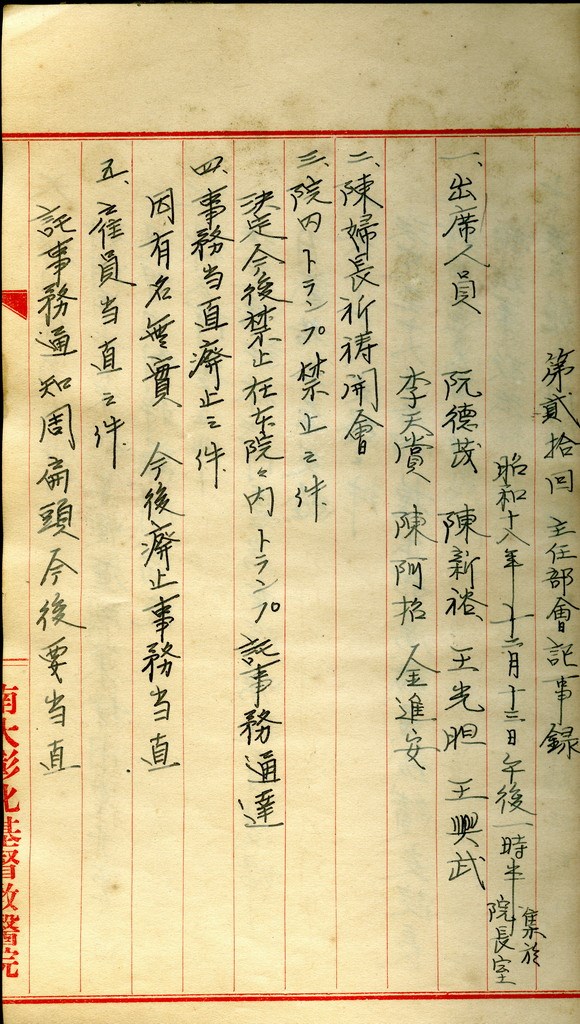 第貳拾回 主任部會記事録
昭和十八年 十二月十三日午後一時半 集於院長室
一、出席人員 阮德茂 陳新裕 王光胆 王興武
李天賞 陳阿招 金進安
二、陳婦長祈祷開會
三、院内トランプ禁止之件
決定今後禁止在本院々内トランプ 託事務通達
四、事務当直廢止之件
因有名無實 今後廢止事務当直
五、雇員当直之件
託事務通知周扁頭今後要当直
南大彰化基督教醫院